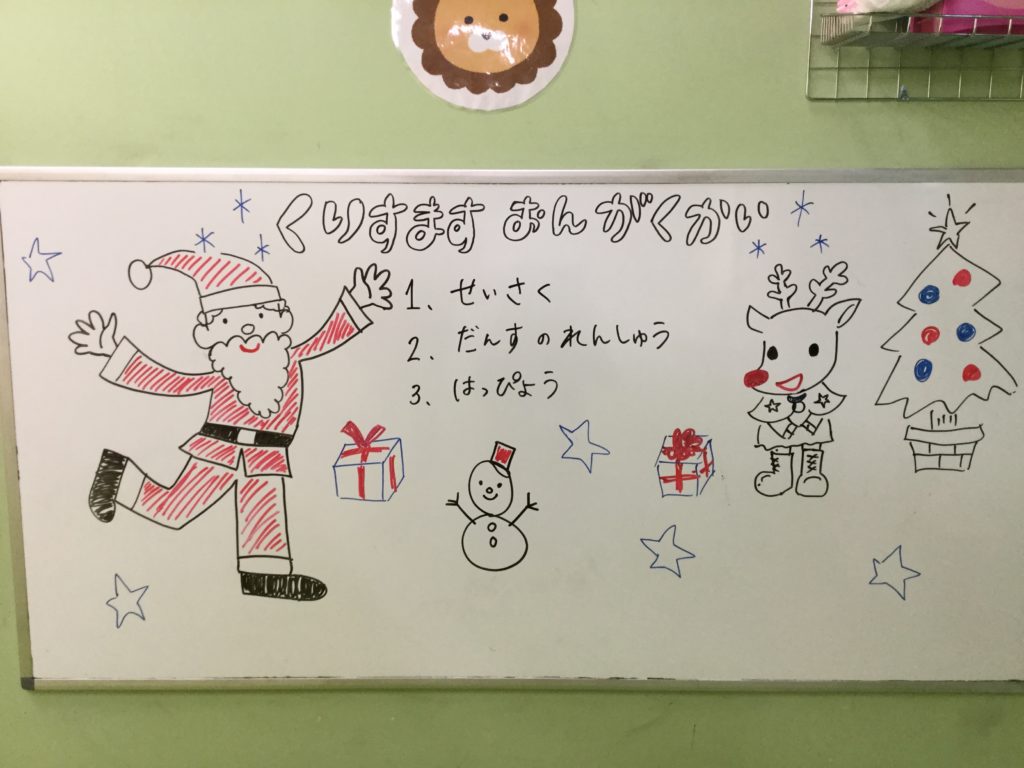 くりすます おんがくかい
1、せいさく
2、だんすのれんしゅう
3、はっぴょう